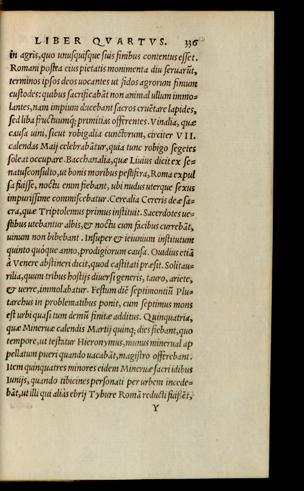 LIBER QVARTVS. 336
in agris, quo unusquisque suis finibus contentus esset.
Romani postea eius pietatis monimenta diu seruarūt,
terminos ipsos deos uocantes ut fidos agrorum finium
custodes: quibus sacrificabāt non animal ullum immo-
lantes, nam impium ducebant sacros cruētare lapides,
sed liba fructuumq; primitias offerentes. Vinalia, quæ
causa uini, sicut robigalia cunctorum, circiter VII.
calendas Maij celebrabātur, quia tunc robigo segetes
soleat occupare. Bacchanalia, quæ Liuius dicit ex se-
natusconsulto, ut bonis moribus pestifera, Roma expul
sa fuisse, noctu enim fiebant, ubi nudus uterque sexus
impurissime commiscebatur. Cerealia Cereris deæ sa-
cra, quæ Triptolemus primus instituit. Sacerdotes ue-
stibus utebantur albis, & noctu cum facibus currebāt,
uinum non bibebant. Insuper & ieiunium institutum
quinto quoque anno, prodigiorum causa. Ouidius etiā
à Venere abstineri dicit, quod castitati præsit. Solitau-
rilia, quum tribus hostijs diuersi generis, tauro, ariete,
& uerre, immolabatur. Festum diē septimontiū Plu-
tarchus in problematibus ponit, cum septimus mons
est urbi quasi tum demū finitæ additus. Quinquatria,
quæ Mineruæ calendis Martij quinq; dies fiebant, quo
tempore, ut testatur Hieronymus, munus minerual ap
pellatum pueri quando uacabāt, magistro offerebant.
Item quinquatres minores eidem Mineruæ sacri idibus
Iunijs, quando tibicines personati per urbem incede-
bāt, ut illi qui aliàs ebrij Tybure Romā reducti fuissēt,
Y